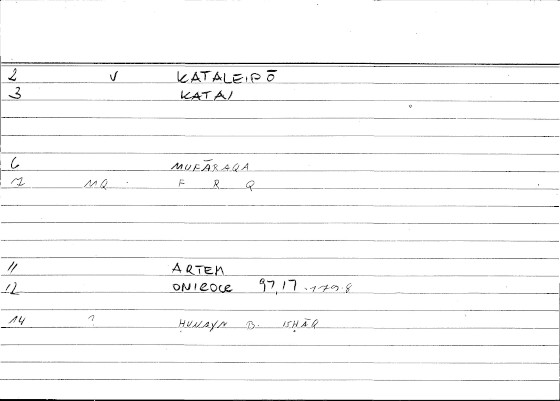 2 V KATALEIPŌ
3 KATAI
6 MUFĀRAQA
7 MQ F R Q
11 ARTEM
12 ONIROCR 97,17 - 179.8
14 ? ḤUNAYN B. ISḤĀQ